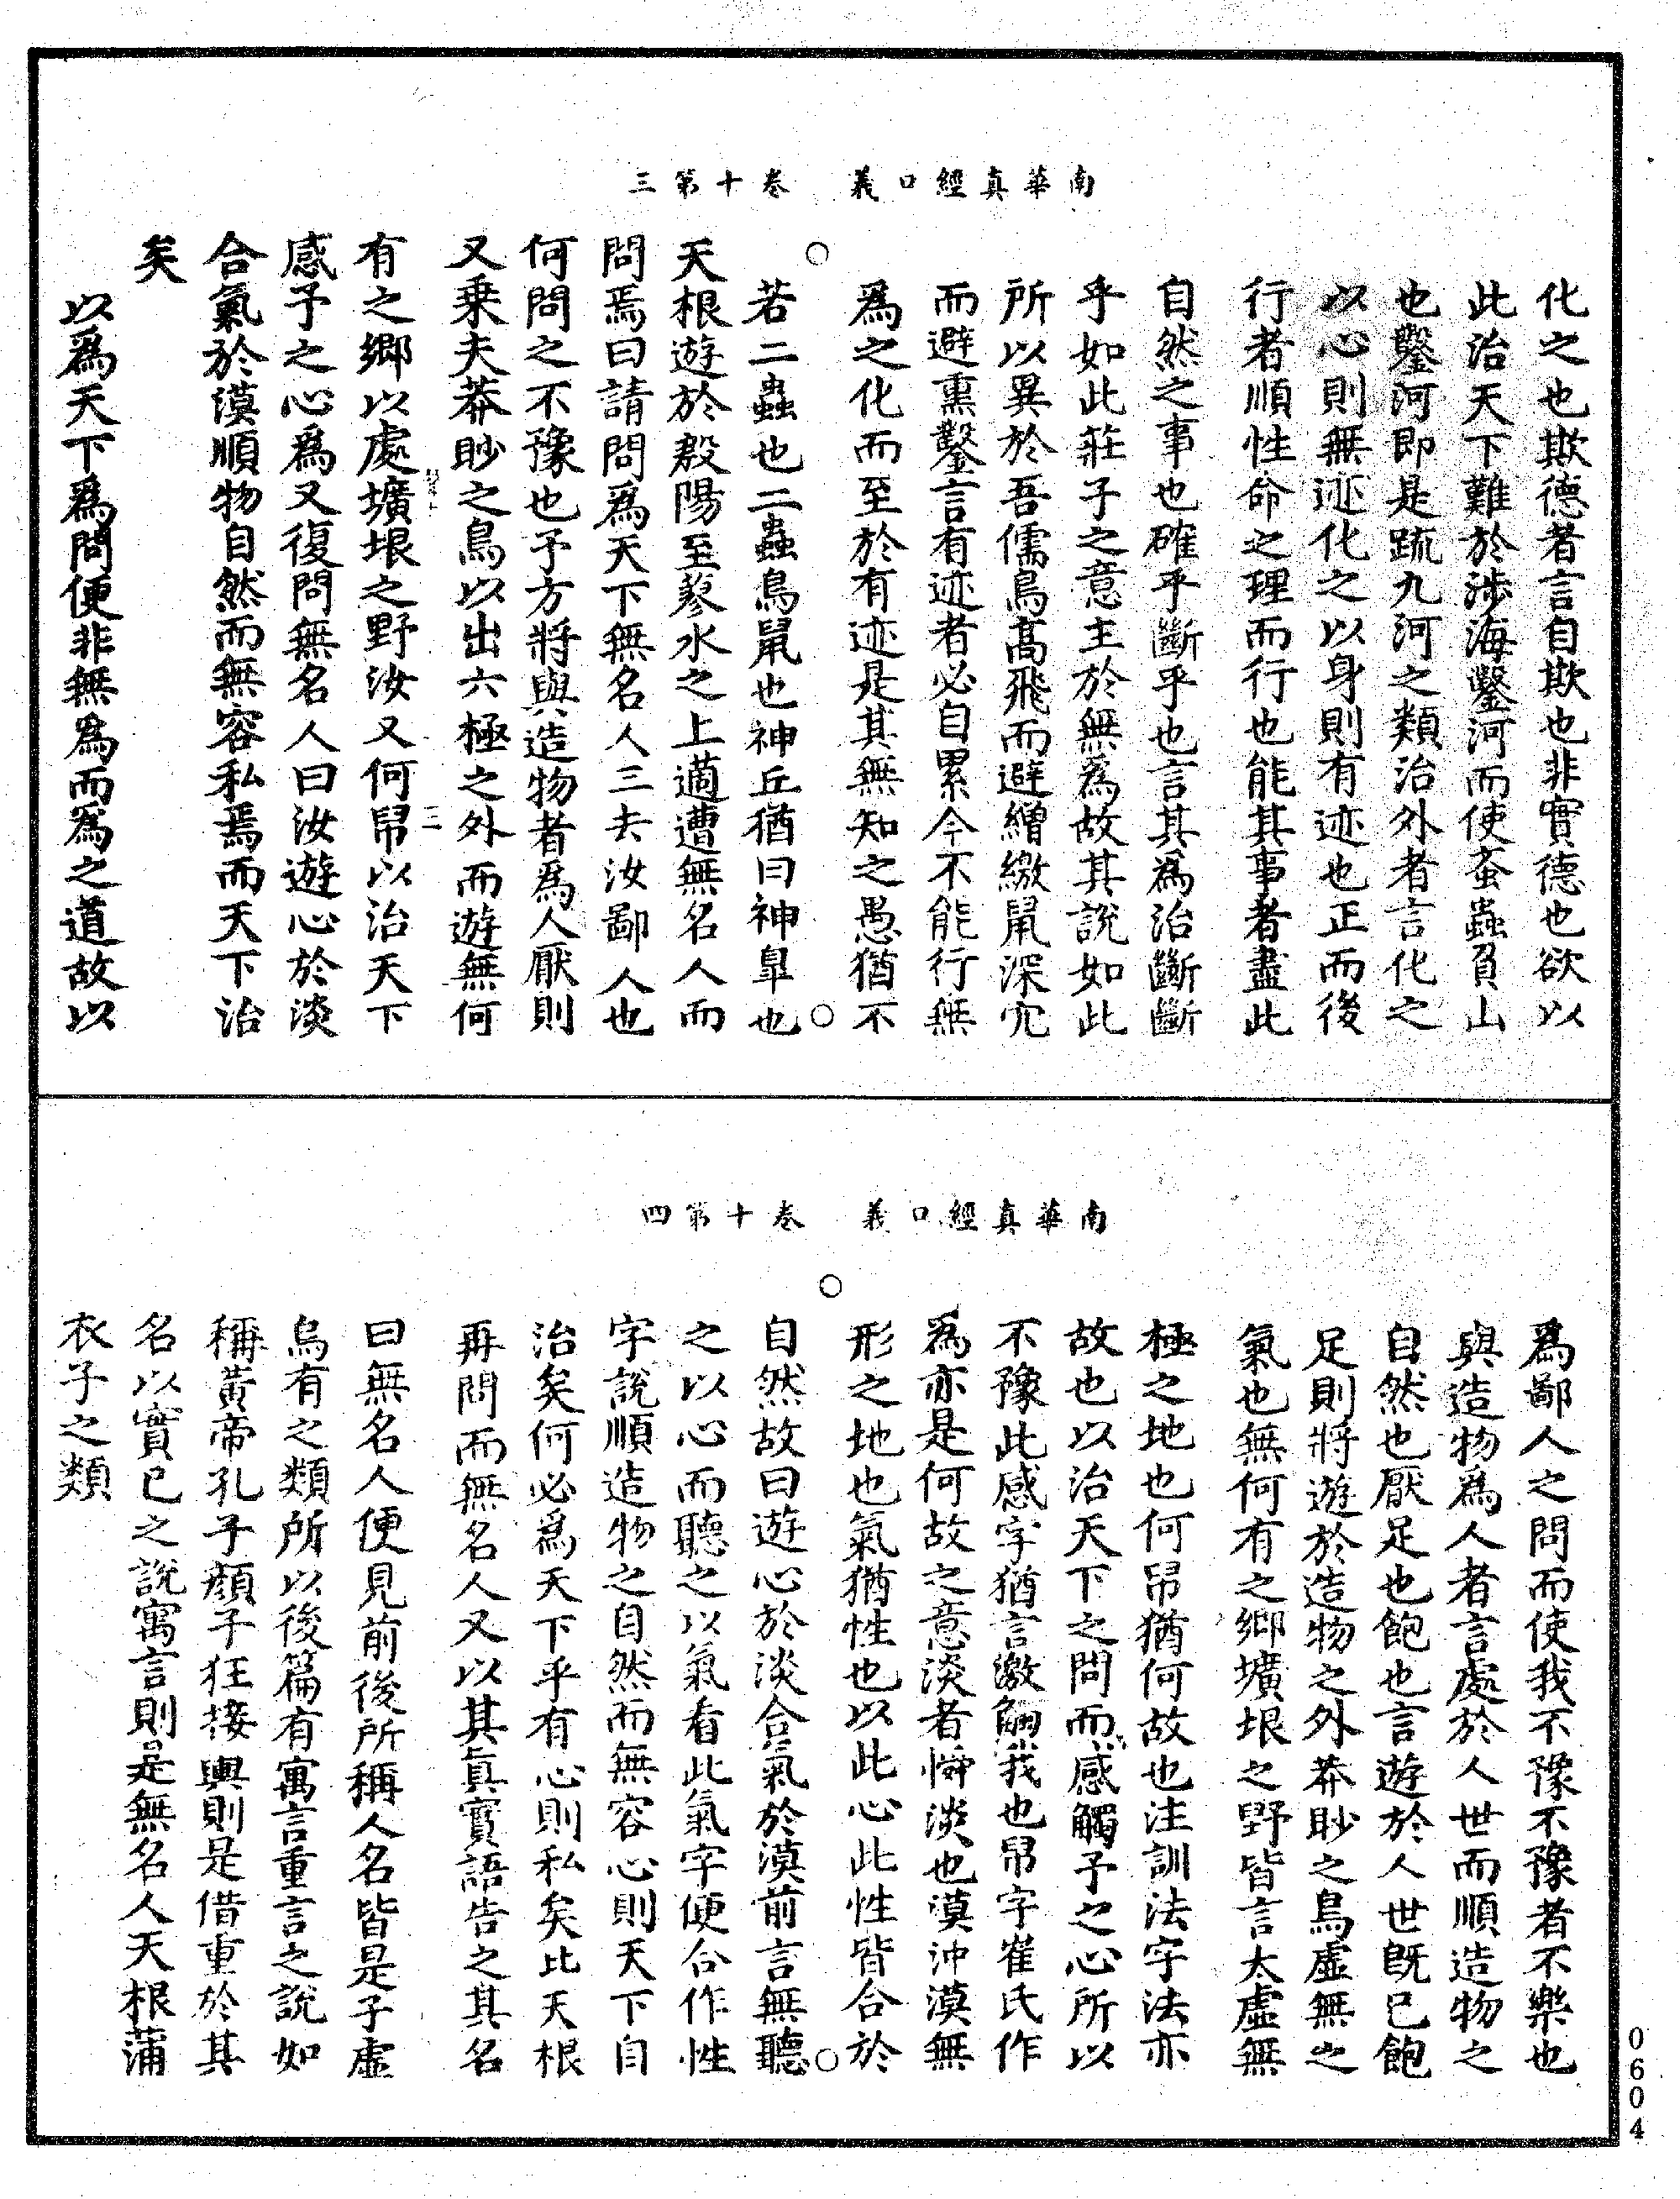 南華真經口義　卷十第三
化之也欺德者言自欺也非實德也欲以
此治天下難於涉海鑿河而使蚉蟲負山
也鑿河即是疏九河之類治外者言化之
以心則無迹化之以身則有迹也正而後
行者順性命之理而行也能其事者盡此
自然之事也確乎斷乎也言其為治斷斷
乎如此莊子之意主於無為故其說如此
所以異於吾儒鳥高飛而避繒繳鼠深穴
而避熏鑿言有迹者必自累今不能行無
為之化而至於有迹是其無知之愚猶不
若二蟲也二蟲鳥鼠也神丘猶曰神皐也
天根遊於殷陽至蓼水之上適遭無名人而
問焉曰請問為天下無名人三去汝鄙人也
何問之不豫也予方將與造物者為人厭則
又乗夫莽眇之鳥以出六極之外而遊無何
有之鄉以處壙垠之野汝又何帠以治天下
感予之心為又復問無名人曰汝遊心於淡
合氣於漠順物自然而無容私焉而天下治
矣
以為天下為問便非無為而為之道故以
南華真經口義　卷十第四
為鄙人之問而使我不豫不豫者不樂也
與造物為人者言處於人世而順造物之
自然也厭足也飽也言遊於人世既已飽
足則將遊於造物之外莽眇之鳥虛無之
氣也無何有之鄉壙垠之野皆言太虛無
極之地也何帠猶何故也注訓法字法亦
故也以治天下之問而感觸予之心所以
不豫此感字猶言激觸我也帠字崔氏作
為亦是何故之意淡者恬淡也漠沖漠無
形之地也氣猶性也以此心此性皆合於
自然故曰遊心於淡合氣於漠前言無聽
之以心而聽之以氣看此氣字便合作性
字說順造物之自然而無容心則天下自
治矣何必為天下乎有心則私矣比天根
再問而無名人又以其真實語告之其名
曰無名人便見前後所稱人名皆是子虛
烏有之類所以後篇有寓言重言之說如
稱黃帝孔子顏子狂接輿則是借重於其
名以實已之說寓言則是無名人天根蒲
衣子之類
0604